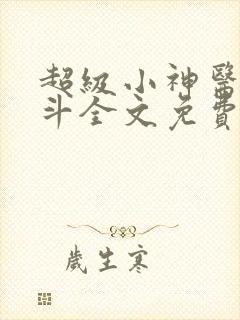 超級小神醫
斗全文免費
歲生寒